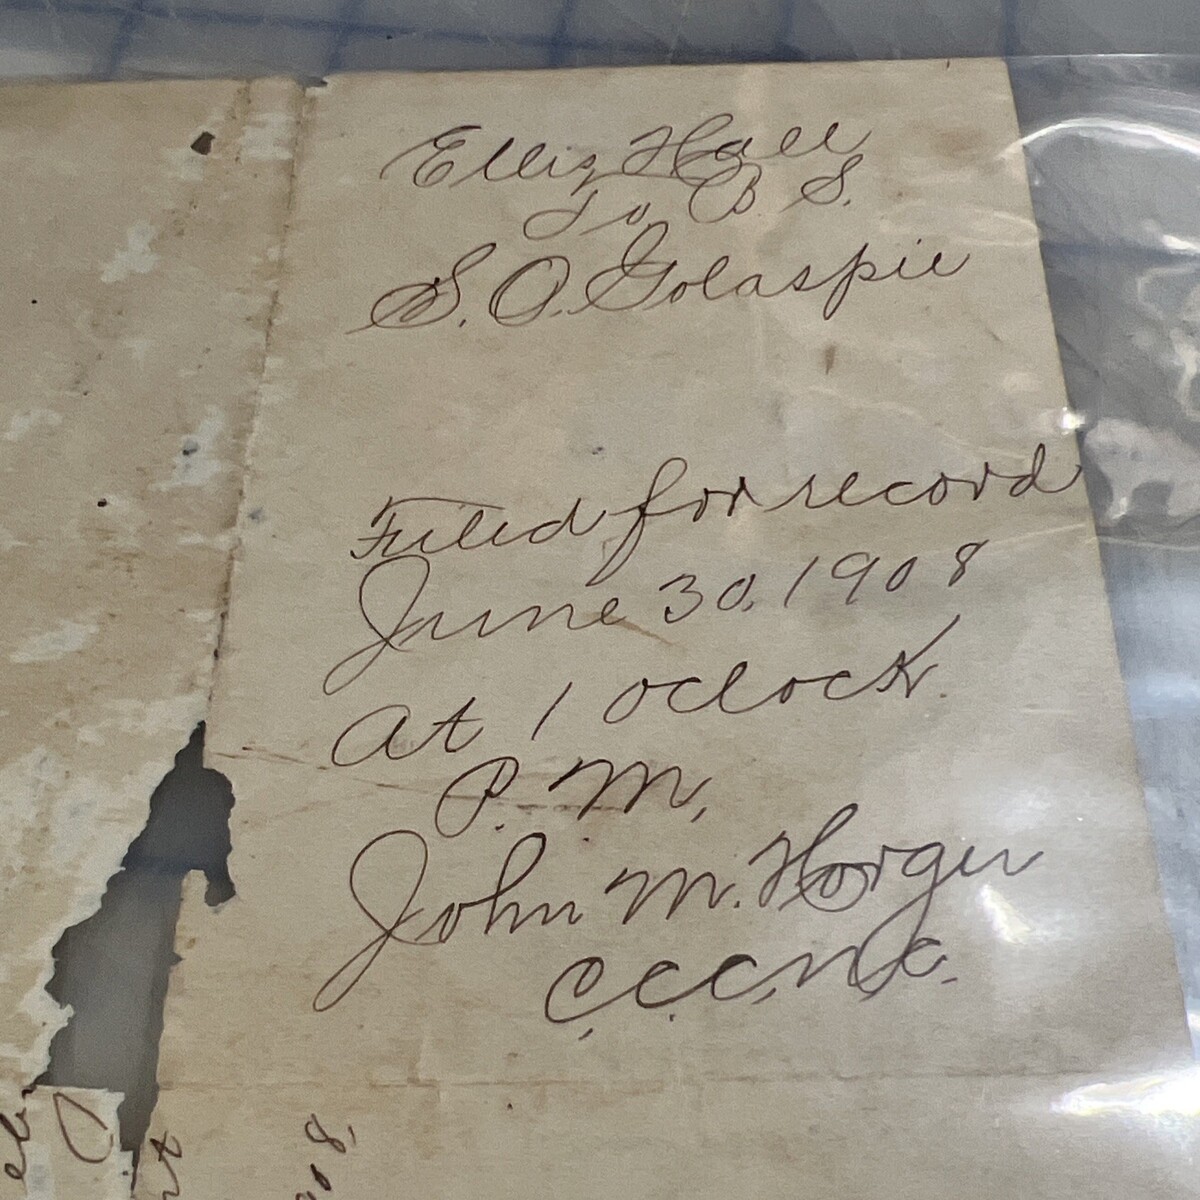 Ellis Hall
To B. S.
S. O. Golaspie
Filed for record
June 30, 1908
at 1 oclock
P. M,
John M. Horger
C. C. C. N. C.